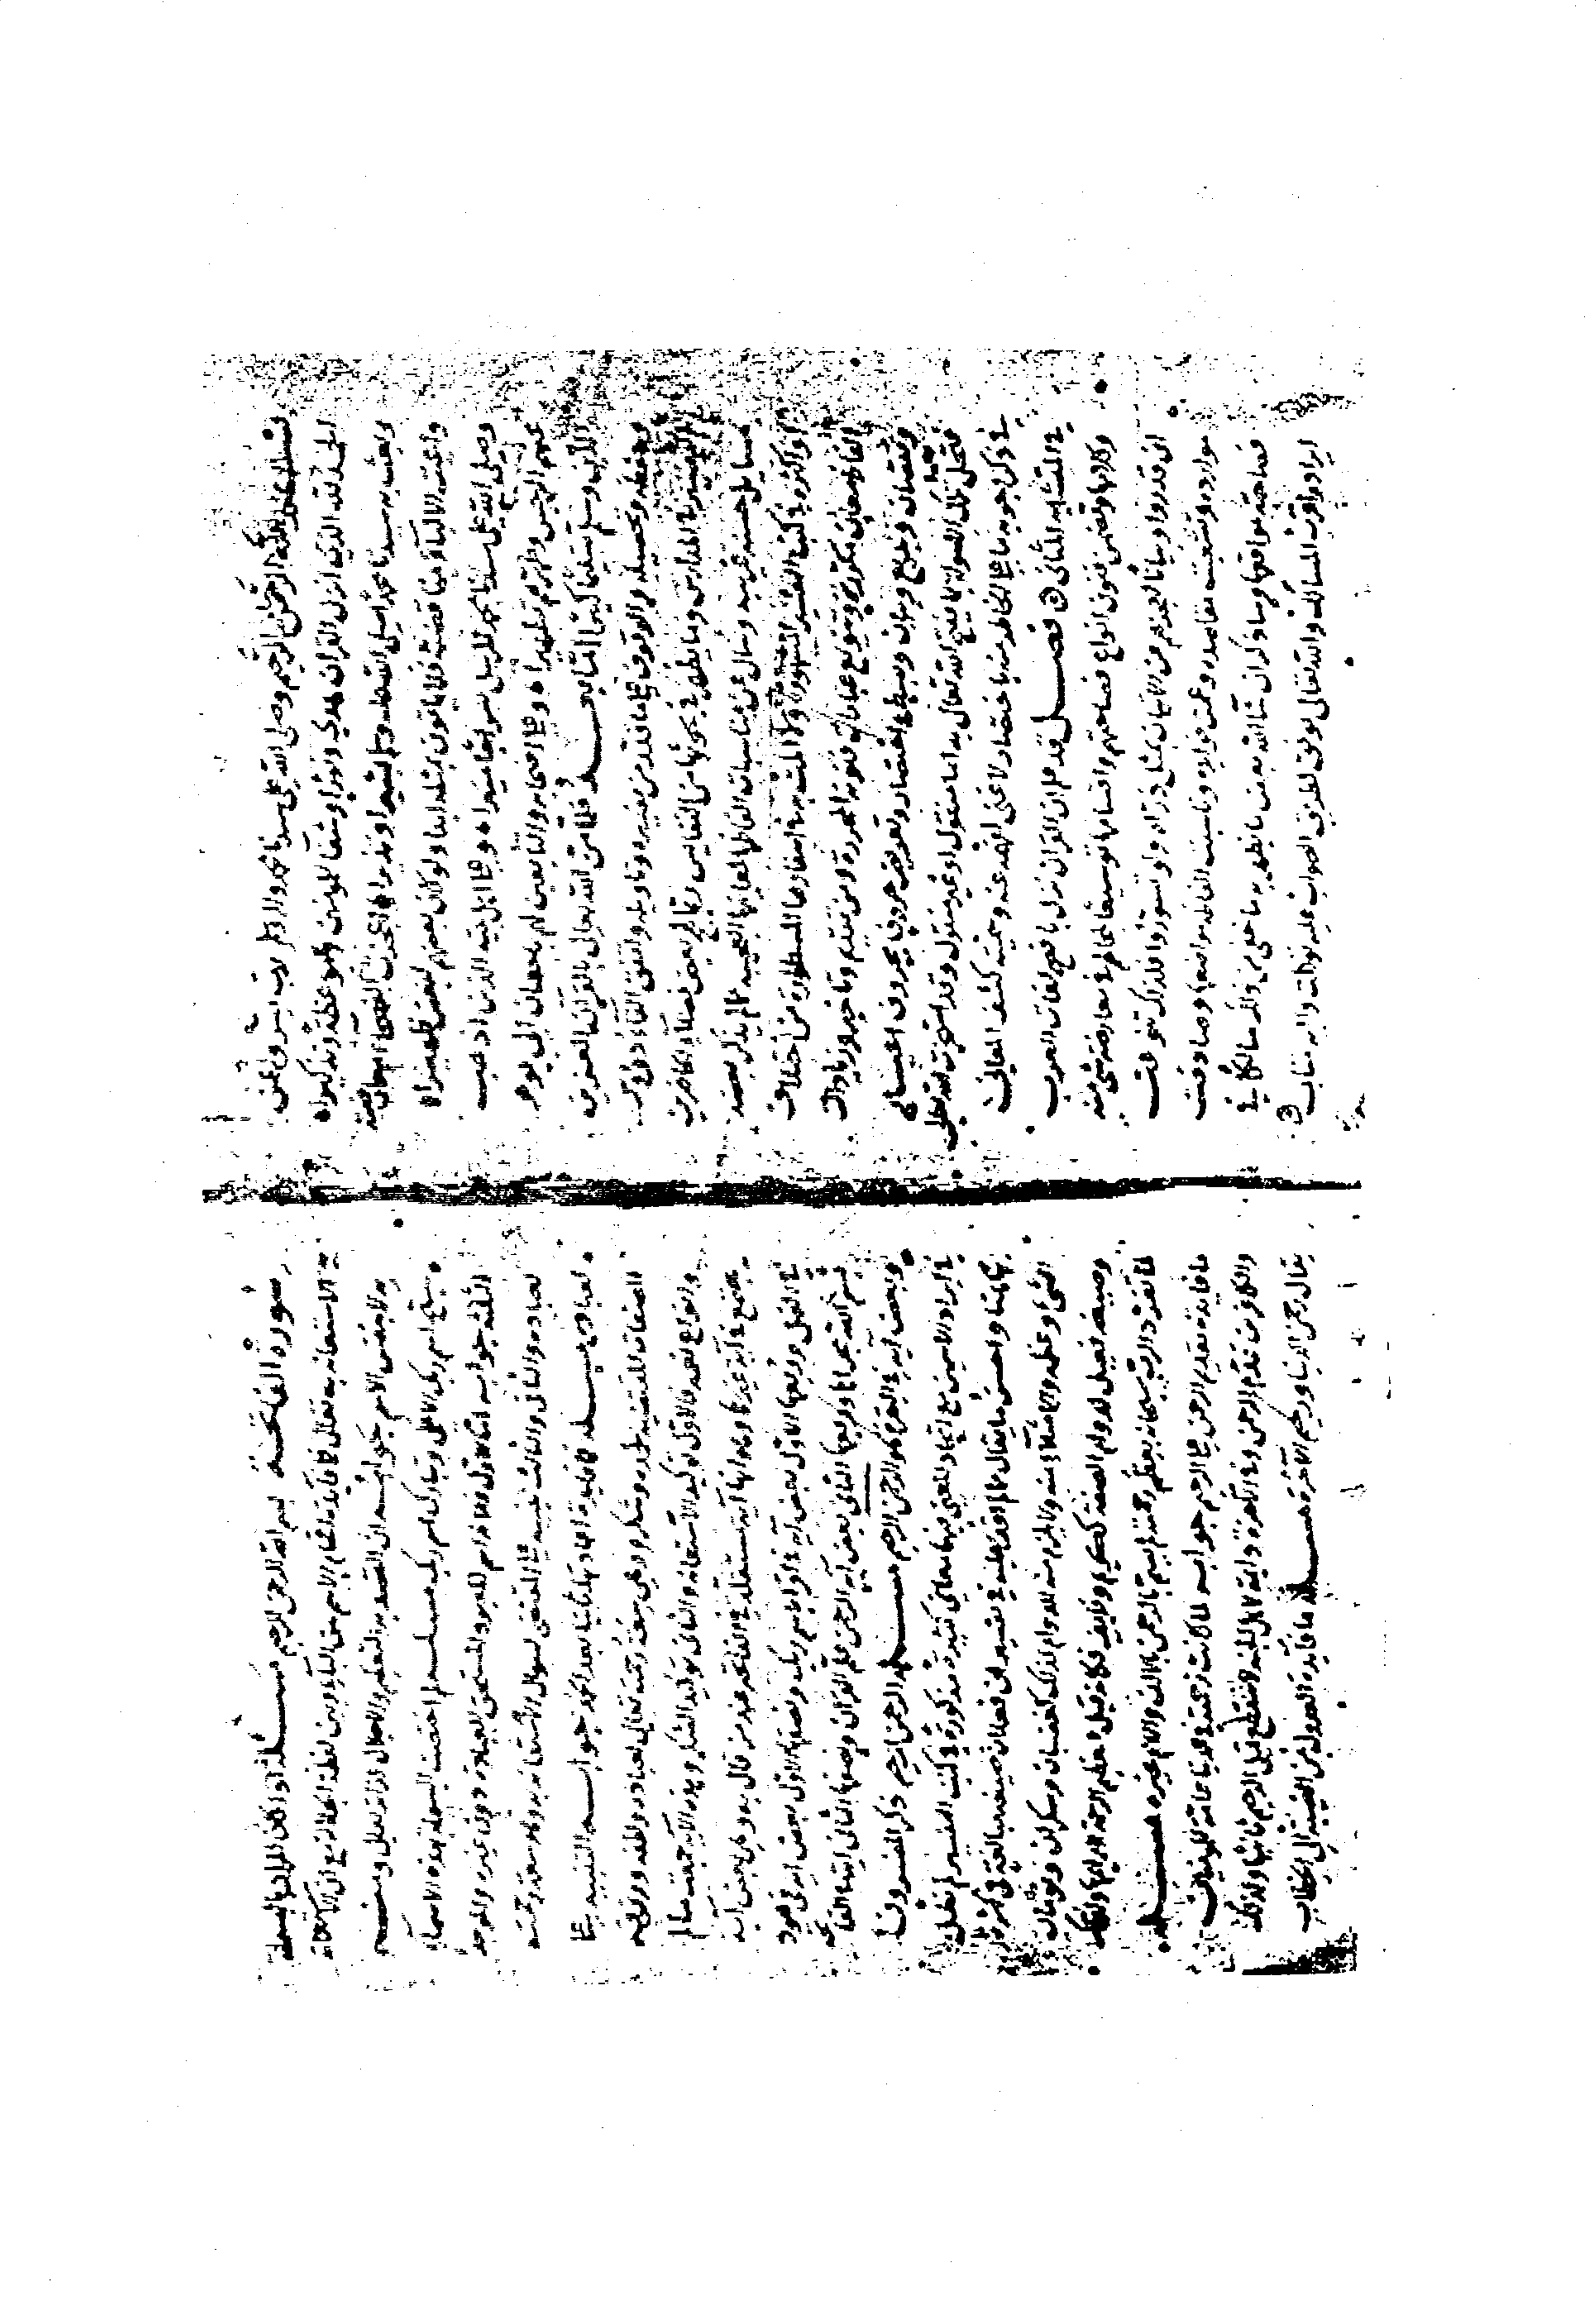 بسم الله الرحمن الرحيم وصلى الله على سيدنا محمد واله وسلم رب يسر واعن
الحمد لله الذي انزل القران هدى ونورا وشفا للمومنين وموعظة وتذكيرا
وبعث به سيدنا محمدا صلى الله عليه وسلم بشيرا ونذيرا اعجزت الفصحاء
واعيت الالبا فلا ياتون بمثله ابدا ولو كان بعضهم لبعض ظهيرا
وصلى الله على سيدنا محمد المرسل سراجا منيرا وعلى اهل بيته الذين اذهب
عنهم الرجس وطهرهم تطهيرا وعلى اصحابه والتابعين لهم باحسان الى يوم
الدين وسلم تسليما كثيرا اما بعد فلما من الله تعالى بالقران العزيز
وحفظه وتحصيله والوقوف على ما قدر من تفسيره وتاويله واتفق القاء دروس
التفسير في المدارس وما يظهر في بحوثها من النفايس ربما لهج بعض فضلاء الحاضرين
بمسايل حسنة غريبة وسال عن مناسبات الفاظها لمعانيها العجيبة مما لم يذكر بعضه
او اكثره في كتب التفسير المشهورة ولا المت به في اسفارها المسطورة من اختلاف
الفاظ معان مكررة وتنويع عبارات فنونه المحررة ومن تقديم وتاخير وزيادات
ونقصان وبديع وبيان وبسيط واختصار وتعويض حروف بحروف اغيار
في ذكر اجوبة ما على الخاطر منها باختصار لا غنى لفهمه عنه وسميته كشف المعاني
في المتشابه المثاني فصل قد علم ان القران نزل بافصح لغات العرب
وكلامها وتضمن فنون انواع فصاحتهم واقسامها توسيعا لمجالهم في معارضة شي منه
ان قدروا وبيانا لعجزهم عن الاتيان بمثل ذرة ولو تسوروا فلذلك تنوعت
موارده وتشعبت مقاصده وعمت فوايده وناسبت الفاظه مواضعها وصادفت
فصاحته مواقعها وساذكر ان شا الله بعض ما يظهر به ما خفى من ذلك سالكا في
ايراده اقرب المسالك والله تعالى يوفق لطريق الصواب عليه توكلت واليه متاب
سورة الفاتحة بسم الله الرحمن الرحيم مسئلة اذا كان المراد بالبسملة
الاستعانة به تعالى فما فايدة اقحام الاسم بين الباء وبين لفظة الجلالة مع ان الاستعانة
به لا بنفس الاسم جوابه ان القصد به التعظيم والاجلال لذاته تعالى ومنه
سبح اسم ربك الاعلى وتبارك اسم ربك مسئلة لم اختصت البسملة بهذه الاسماء
الثلثة جوابه اما الاول فلانه اسم للمعبود المستحق للعبادة دون غيره والموجد
لعباده والثاني والثالث تنبيه على المقتضى لسوال الاستعانة به وهو سعة رحمته
لعباده مسئلة ما فايدة اعادتهما ثانيا بعد الحمد جوابه التنبيه على
الصفات المقتضية لحمده وشكره وهي سعة رحمته تعالى لعباده ولطفه ورزقه
وانواع نعمه فالاول توكيد الاستعانة والثاني توكيد الشكر وهذه الاية جمعت ما لم
يجتمع في اية غيرها وهو انها اية مستقلة في الفاتحة عند من قال به وهي بعض اية
في النمل وربعها الاول بعض اية في اقرا باسم ربك ونصفها الاول بعض اية في هود
بسم الله مجراها وربعها الثاني بعض اية الرحمن علم القران ونصفها الثاني اية في الفاتحة
وبعض اية في البقرة هو الرحمن الرحيم مسئلة الرحمن الرحيم ذكر المفسرون
في ايراد الاسمين مع اتحاد المعنى فيهما معاني كثيرة مذكورة في كتب التفسير لم نطل
بها هنا واحسن ما يقال مما لم اقف عليه في تفسير ان فعلان صيغة مبالغة في كثرة
الشي وعظمه والامتلاء منه ولا يلزم منه الدوام لذلك كغضبان وسكران ونومان
وصيغة فعيل لدوام الصفة ككريم وظريف فكانه قيل العظيم الرحمة الدايمها
لما تفرد الرب سبحانه بعظم رحمته لم يسم بالرحمن بالالف واللام غيره مسئلة
ما فايدة تقديم الرحمن على الرحيم جوابه لما كانت رحمته في الدنيا عامة للمومنين
والكافرين قدم الرحمن وفي الاخرة دايمة لاهل الجنة لا تنقطع قيل الرحيم ثانيا ولذلك
يقال رحمن الدنيا ورحيم الاخرة مسئلة ما فايدة العدول من الغيبة الى الخطاب